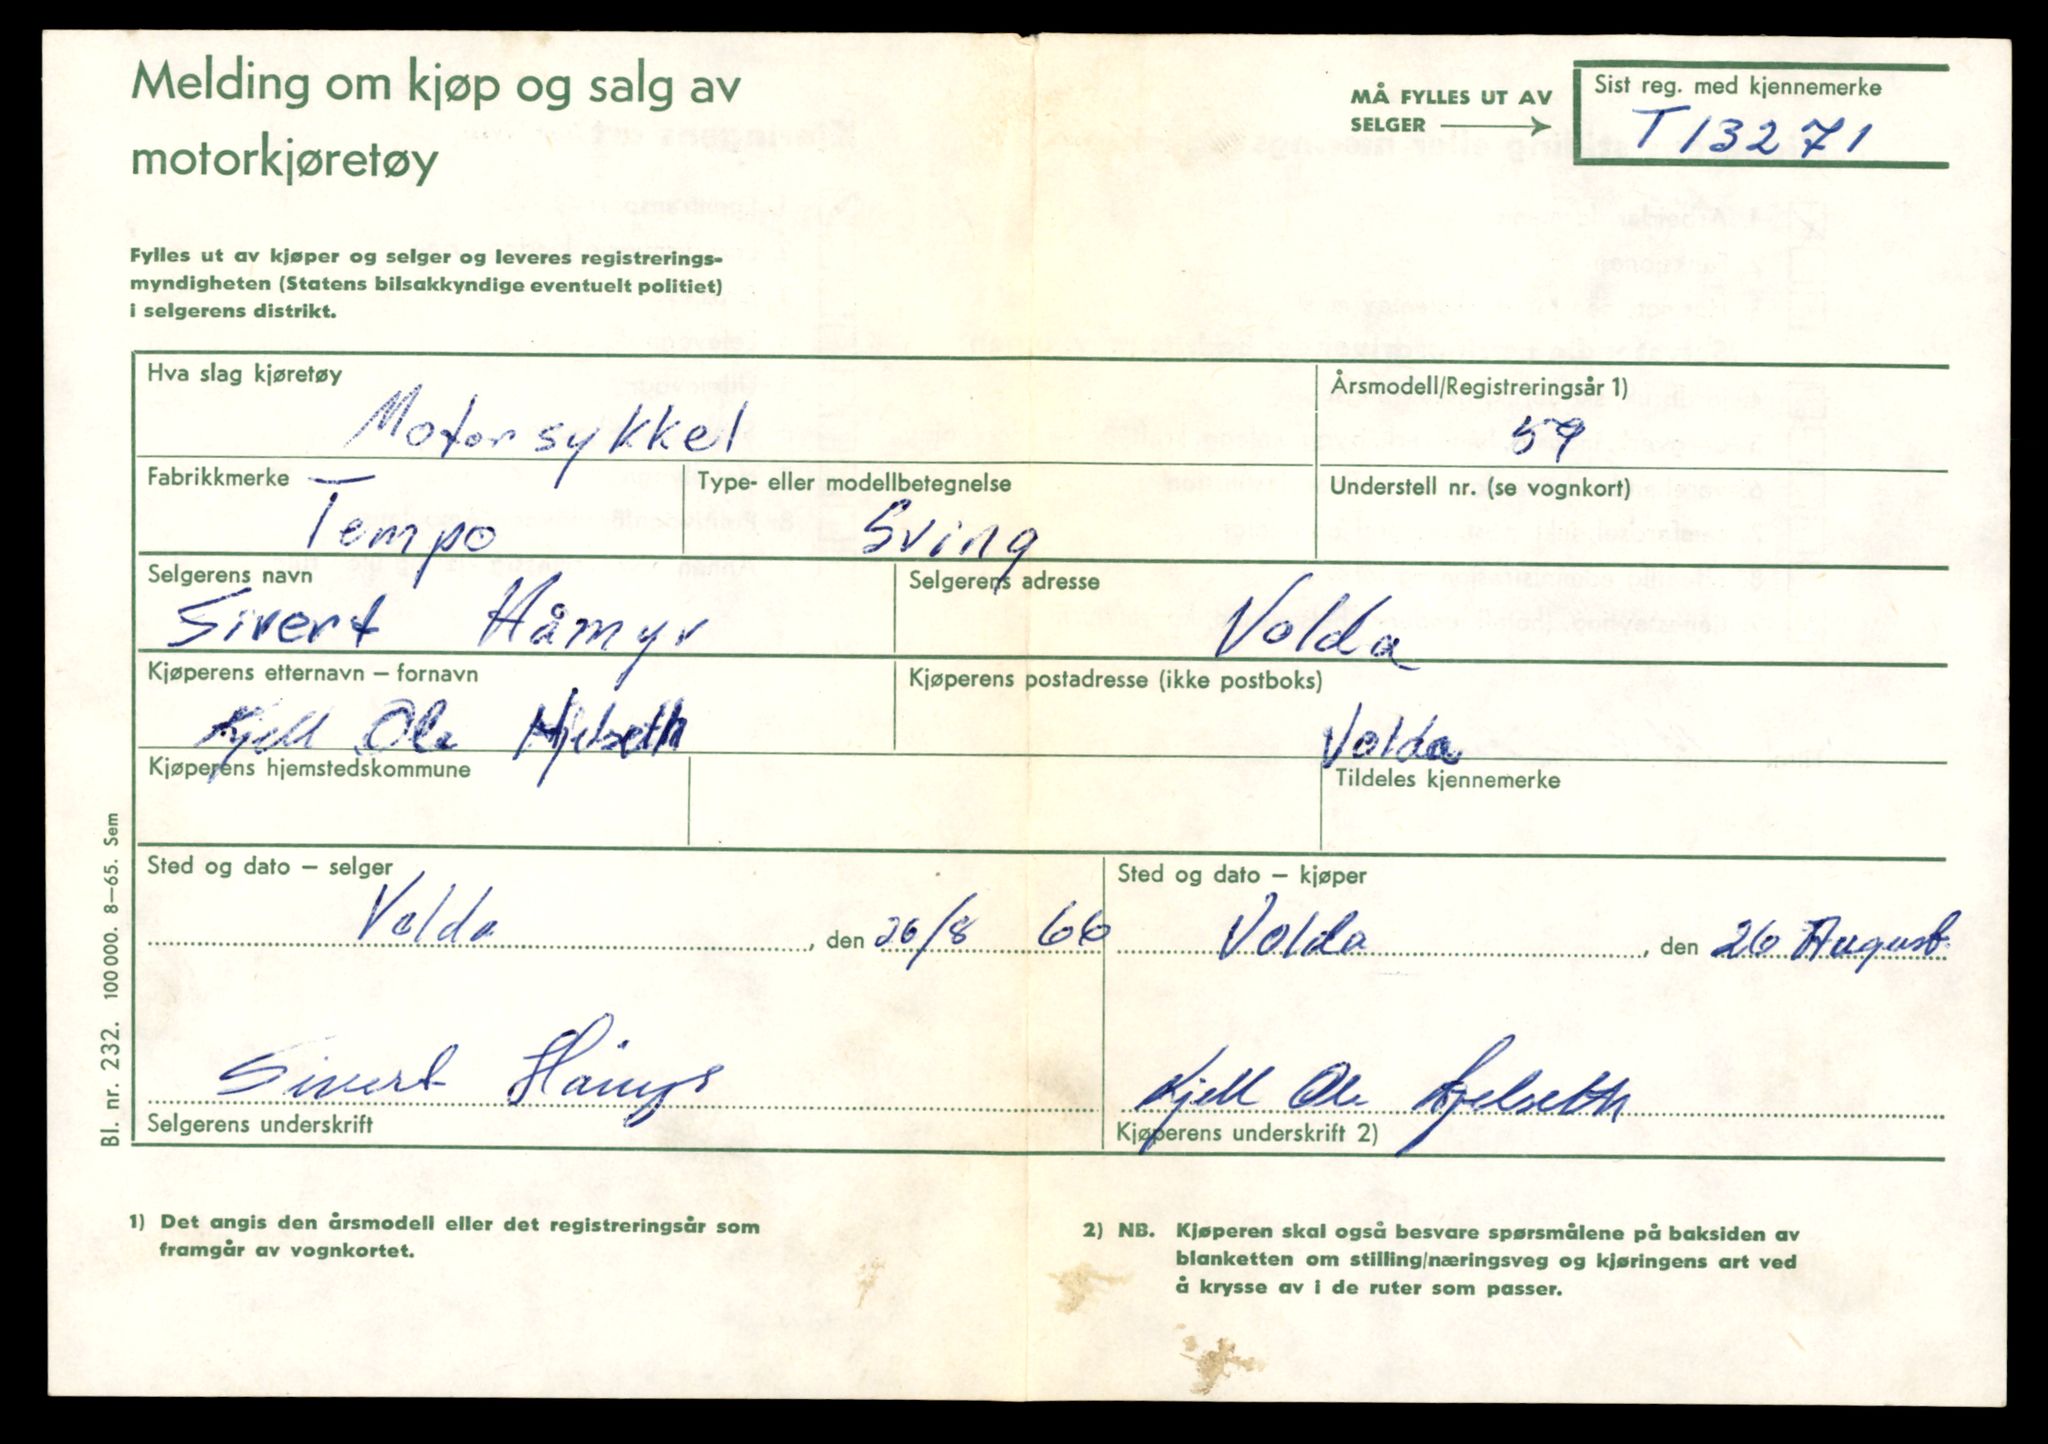 Melding om kjøp og salg av
motorkjøretøy
MÅ FYLLES UT AV
SELGER
Sist reg. med kjennemerke
T 13271
Fylles ut av kjøper og selger og leveres registrerings-
myndigheten (Statens bilsakkyndige eventuelt politiet)
i selgerens distrikt.
Hva slag kjøretøy
Årsmodell/Registreringsår 1)
Motorsykkel
59
Fabrikkmerke
Type- eller modellbetegnelse
Understell nr. (se vognkort)
Tempo
Sving
Selgerens navn
Selgerens adresse
Sivert Håmyr
Volda
Kjøperens etternavn – fornavn
Kjøperens postadresse (ikke postboks)
Kjell Ole Hjelseth
Volda
Kjøperens hjemstedskommune
Tildeles kjennemerke
Sted og dato – selger
Sted og dato – kjøper
Volda, den 26/8 66
Volda, den 26 August
Sivert Håmyr
Kjell Ole Hjelseth
Selgerens underskrift
Kjøperens underskrift 2)
Bl. nr. 232. 100 000. 8—65. Sem
1) Det angis den årsmodell eller det registreringsår som
framgår av vognkortet.
2) NB. Kjøperen skal også besvare spørsmålene på baksiden av
blanketten om stilling/næringsveg og kjøringens art ved
å krysse av i de ruter som passer.